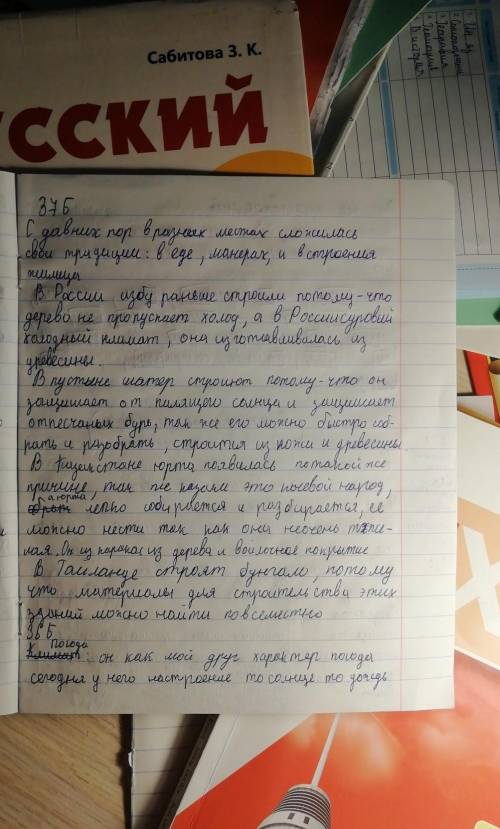 Сабитова З. К.
усский
37Б
С давних пор в разных местах сложилась
свои традиции: в еде, манерах, и в строения
жилищ
В России избу раньше строили потому-что
дерево не пропускает холод, а в России суровый
холодный климат, она изготавливалась из
древесины.
В пустыне шатер строиют потому-что он
защишает от палящего солнца и защишает
отпесчаных бурь, так же его можно быстро соб-
рать и разобрать, строится из кожи и древесины.
В Казахстане юрта появалась потакой же
причине, так же казахи это кочевой народ,
а юрта легко собирается и разбирается, её
можно нести так как она неочень тяже-
лая. Он из каркас из дерева и войлосное покрытие
В Таиланде строят бунгало, потому
что материалы для строительства этих
зданий можно найти повсеместно
38Б
Погода
Климат: он как мой друг характер погода
сегодня у него настроение то солнце то дождь